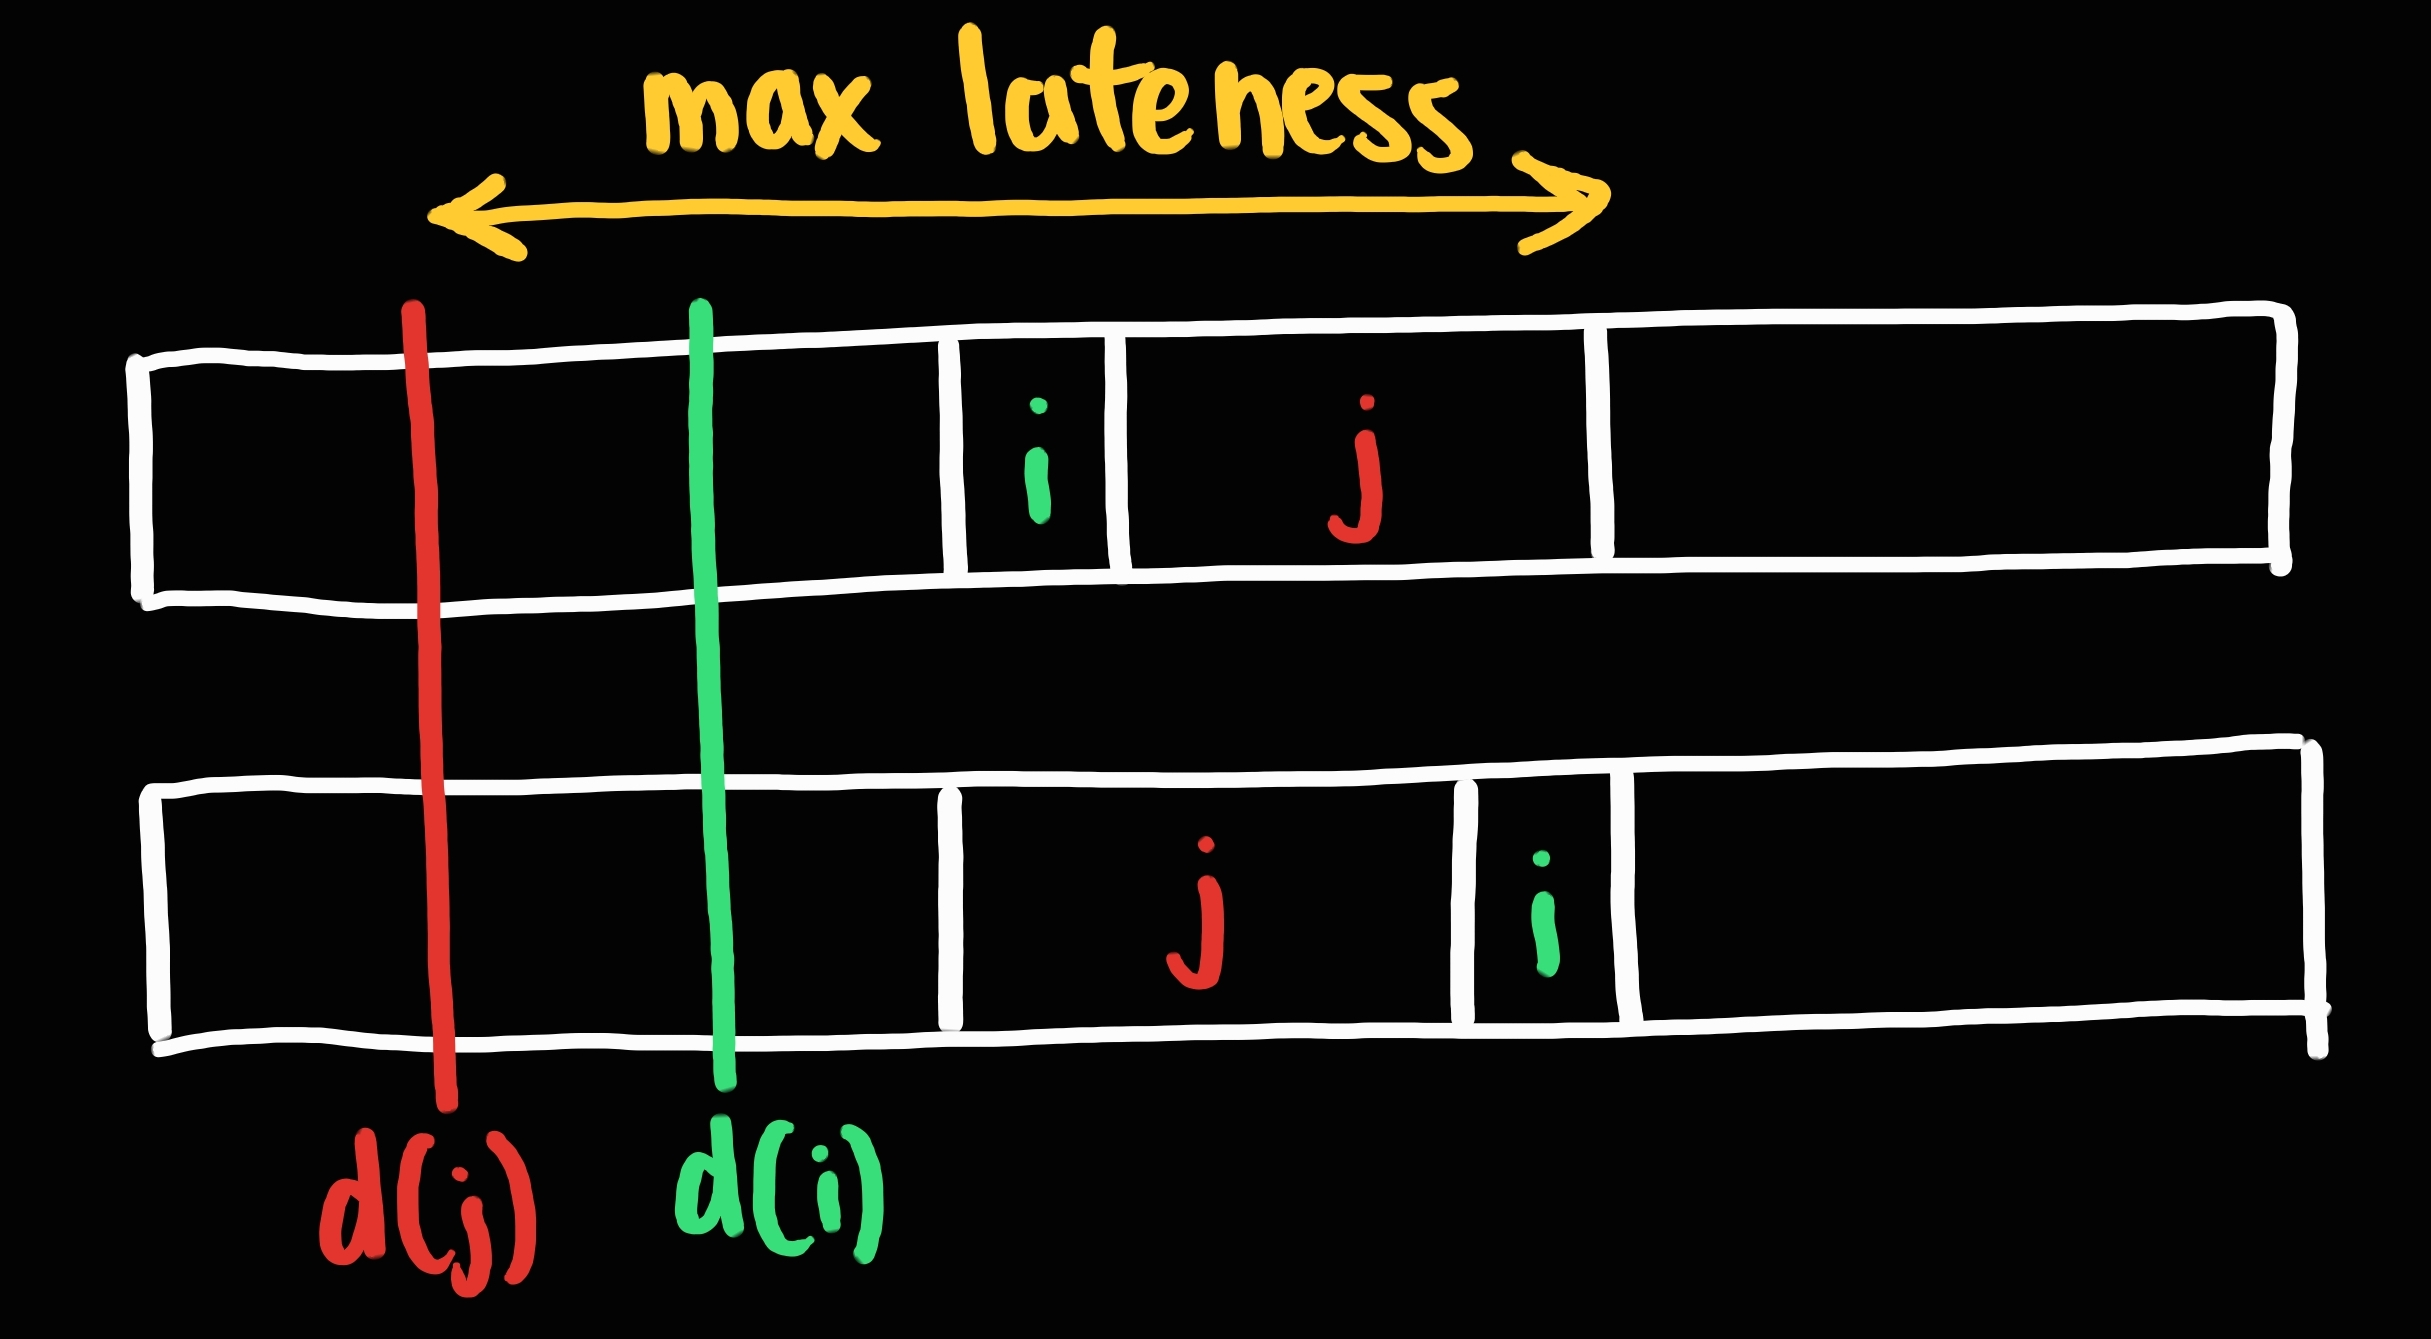 max lateness
i j
j i
d(j) d(i)